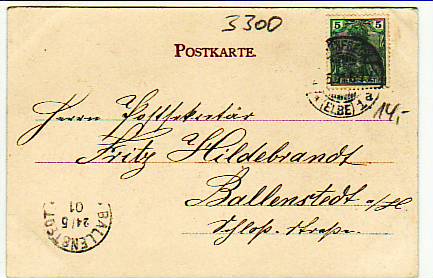 3300
5 5
POSTKARTE.
(ELBE) 1 a
14,-
Herrn Postsekretär
Fritz Hildebrandt
Ballenstedt a/H.
Schloß-straße.
BALLENSTEDT
24/5
01